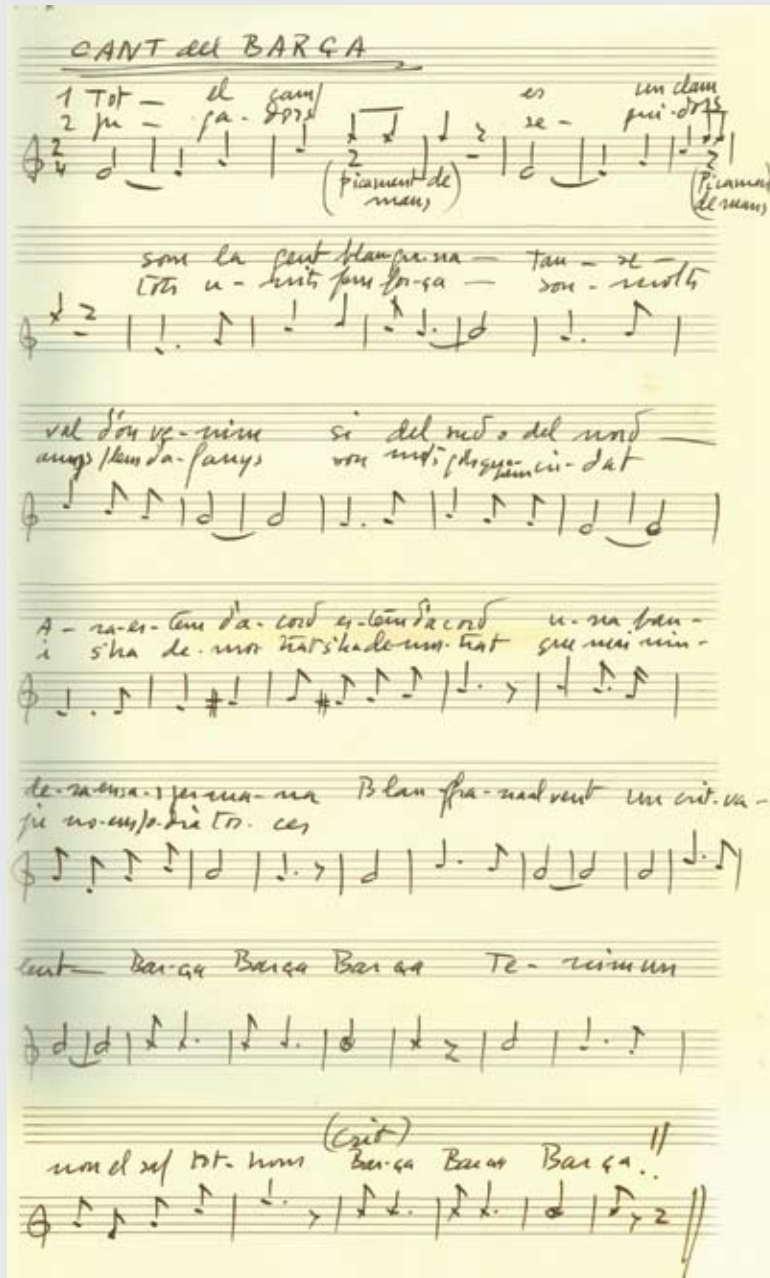 CANT del BARÇA
1 Tot — el camp es un clam
2 ju - ga - dors se - gui-dors
2 4
2 2
(picament de mans) (Picament de mans)
som la gent blaugra-na — Tan — se —
tots u - nits fem for-ça — son - molts
val d'on ve - nim si del sud o del nord —
anys plens d'a-fanys son molts gols que hem cri-dat
A - ra-es-tem d'a-cord es-tem d'acord u-na ban-
i s'ha de-mos trat s'ha de mos-trat que mai nin-
de-ra ens a-ger ma-na Blau-gra-na al vent un crit-va-
gú no ens po-drà tòr-cer
lent — Bar-ça Barça Bar ça Te - nim un
(crit)
nom el sap tot-hom Bar-ça Barça Bar ça!!